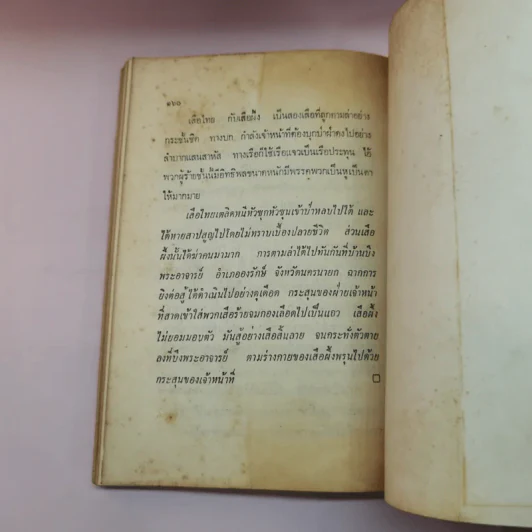 ๑๖๐
เสือไทย กับเสือฝั้ง เป็นสองเสือที่ถูกตามล่าอย่าง
กระชั้นชิด ทางบก กำลังเจ้าหน้าที่ต้องบุกป่าฝ่าดงไปอย่าง
ลำบากแสนสาหัส ทางเรือก็ใช้เรือแจวเป็นเรือประทุน ไอ้
พวกผู้ร้ายชั้นนี้มีอิทธิพลขนาดหนักมีพรรคพวกเป็นหูเป็นตา
ให้มากมาย
เสือไทยเตลิดหนีหัวซุกหัวซุนเข้าป่าหลบไปได้ และ
ได้หายสาปสูญไปโดยไม่ทราบเบื้องปลายชีวิต ส่วนเสือ
ฝั้งนั้นได้ฆ่าคนมามาก การตามล่าได้ไปทันกันที่บ้านบึง
พระอาจารย์ อำเภอองรักษ์ จังหวัดนครนายก ฉากการ
ยิงต่อสู้ได้ดำเนินไปอย่างดุเดือด กระสุนของฝ่ายเจ้าหน้า
ที่สาดเข้าใส่พวกเสือร้ายจมกองเลือดไปเป็นแถว เสือฝั้ง
ไม่ยอมมอบตัว มันสู้อย่างเสือสิ้นลาย จนกระทั่งตัวตาย
ลงที่บึงพระอาจารย์ ตามร่างกายของเสือฝั้งพรุนไปด้วย
กระสุนของเจ้าหน้าที่